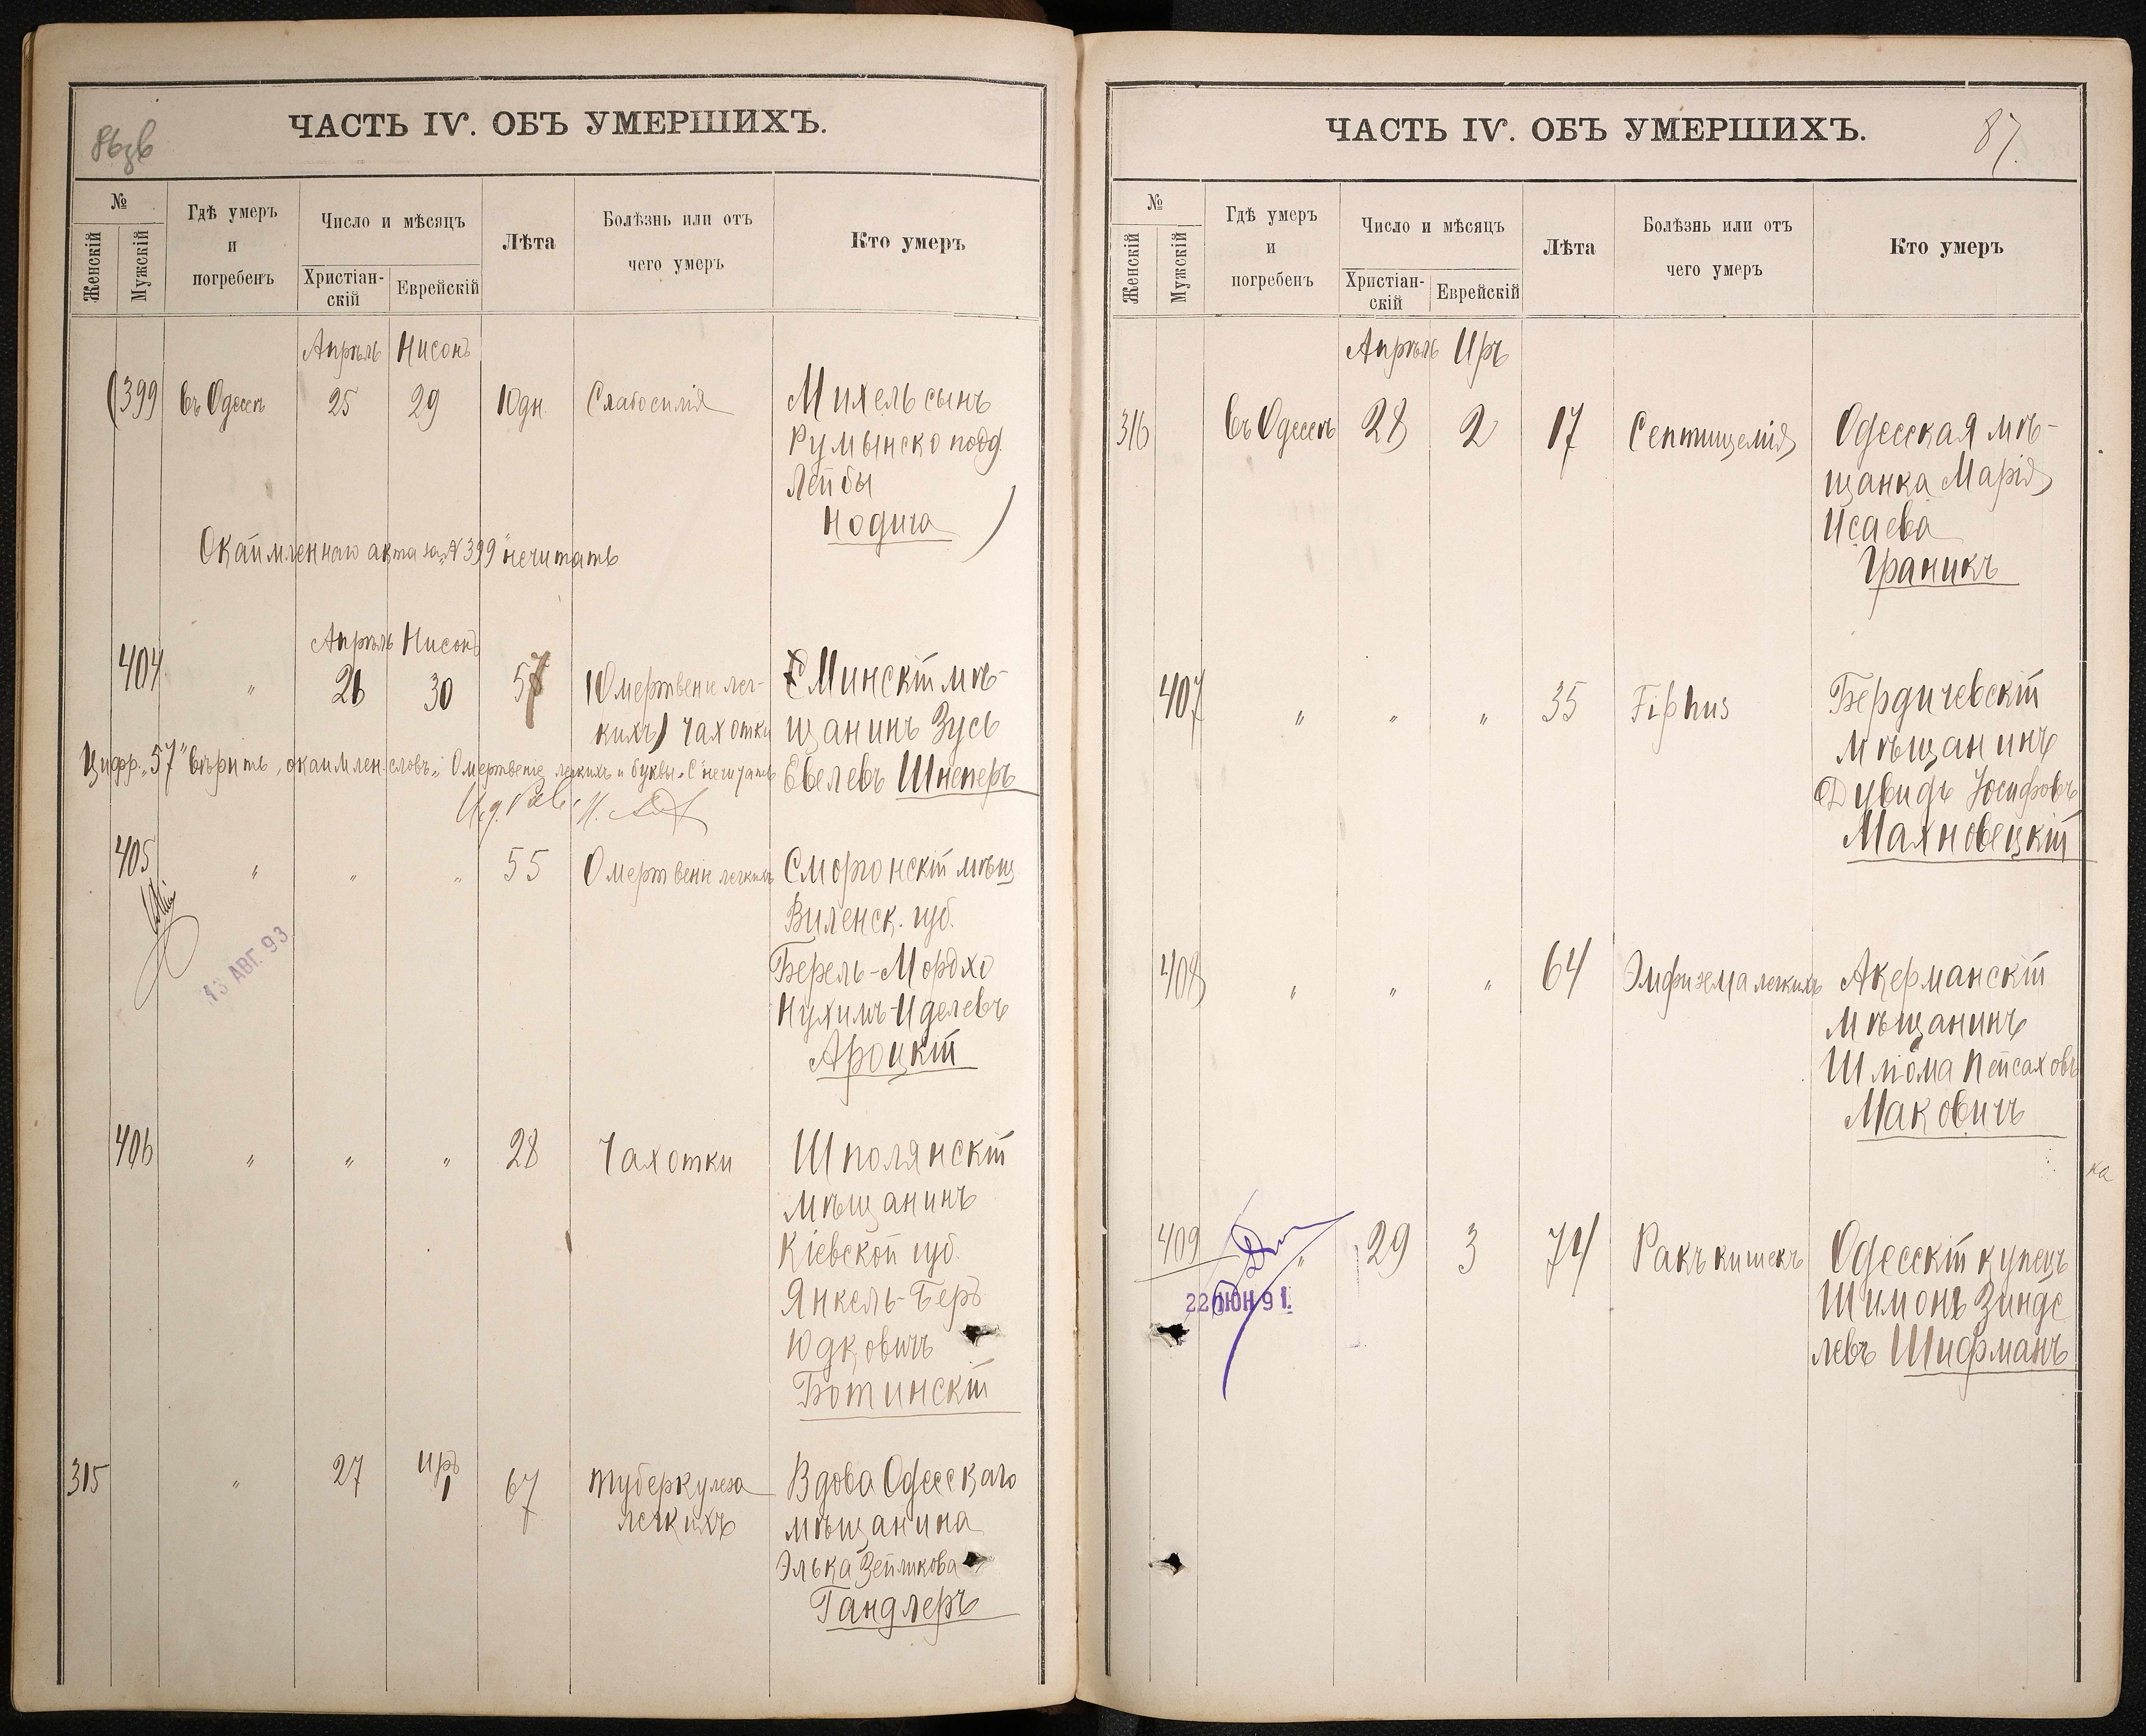 ЧАСТЬ IV. ОБЪ УМЕРШИХЪ.
№
Женскій
Мужскій
Гдѣ умеръ
и
погребенъ
Число и мѣсяцъ
Христіан-
скій
Еврейскій
Лѣта
Болѣзнь или отъ
чего умеръ
Кто умеръ
Апрѣль Нисонъ
(399 въ Одессѣ 25 29 10 дн. Слабосилія Михель сынъ
Румынско подд.
Лейбы
Нодича )
Окаймленнаго акта за „№ 399“ нечитать
Апрѣль Нисонъ
404 „ 26 30 57 (Омертвеніе лег- С Минскій мѣ-
кихъ) Чахотки щанинъ Зусь
Цифр. „57“ вѣрить, окаймлен. словъ „Омертвеніе легкихъ и буквы „С“ нечитать Евелевъ Шнеперъ
405 „ „ „ 55 Омертвеніе легкихъ Сморгонскій мѣщ.
Виленск. губ.
13 АВГ. 93
Берель-Мордхо
Нухимъ-Иделевъ
Ароцкій
406 „ „ „ 28 Чахотки Шполянскій
мѣщанинъ
Кіевской губ.
Янкель-Беръ
Юдковичъ
Ботинскій
315 „ 27 Иръ 1 67 Туберкулеза Вдова Одесскаго
легкихъ мѣщанина
Элька Зейликова
Гандлеръ
ЧАСТЬ IV. ОБЪ УМЕРШИХЪ.
87.
№
Женскій
Мужскій
Гдѣ умеръ
и
погребенъ
Число и мѣсяцъ
Христіан-
скій
Еврейскій
Лѣта
Болѣзнь или отъ
чего умеръ
Кто умеръ
Апрѣль Иръ
316 въ Одессѣ 28 2 17 Септицемія Одесская мѣ-
щанка Марія
Исаева
Граникъ
407 „ „ „ 35 Fiphus Бердичевскій
мѣщанинъ
Дувидъ Юсифовъ
Маяновецкій
408 „ „ „ 64 Эмфизема легкихъ Акерманскій
мѣщанинъ
Шлиома Пейсаховъ
Маковичъ
ка
409 „ 29 3 74 Ракъ кишекъ Одесскій купецъ
22 ІЮН 91. Шимонъ Зинде
левъ Шифманъ